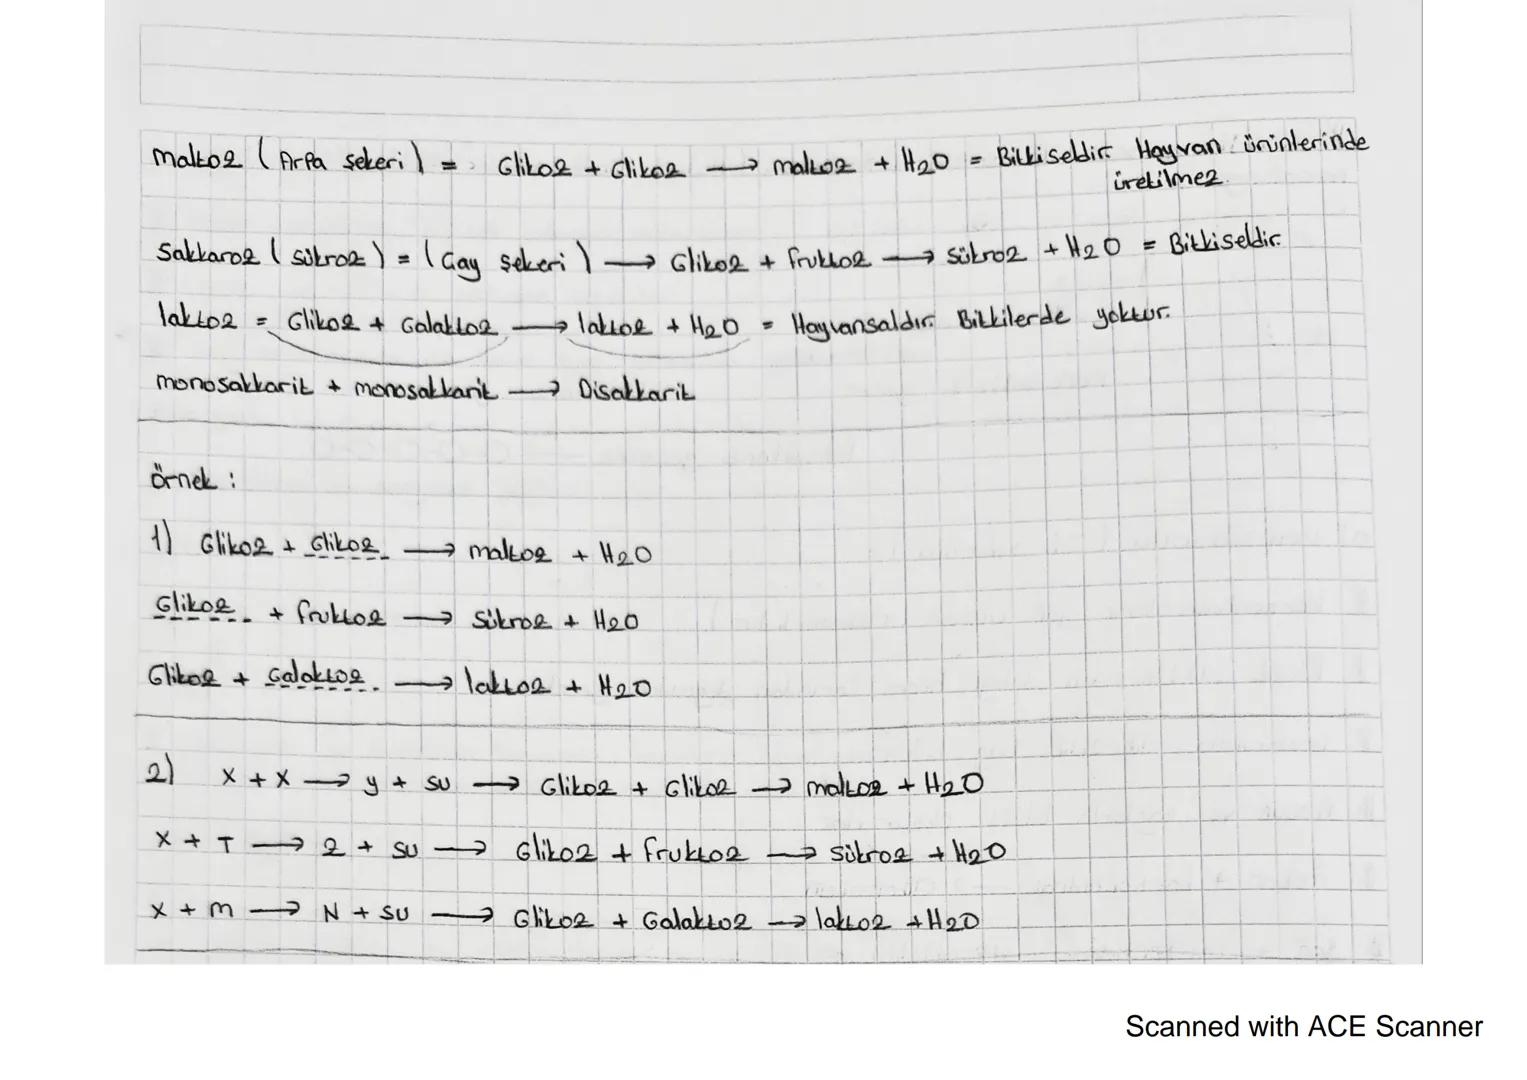 Maltoz (Arpa şekeri) = Glikoz + Glikoz → maltoz + H2O = Bitkiseldir. Hayvan ürünlerinde
üretilmez.
Sakkaroz (sükroz) = (Çay şekeri) → Glikoz + fruktoz → sükroz + H2O = Bitkiseldir.
laktoz = Glikoz + Galaktoz → laktoz + H2O = Hayvansaldır. Bitkilerde yoktur.
monosakkarit + monosakkarit → Disakkarit
örnek :
1) Glikoz + Glikoz → maltoz + H2O
Glikoz + fruktoz → Sükroz + H2O
Glikoz + Galaktoz → laktoz + H2O
2) X + X → y + su → Glikoz + Glikoz → maltoz + H2O
X + T → z + su → Glikoz + fruktoz → sükroz + H2O
X + m → N + su → Glikoz + Galaktoz → laktoz + H2O
Scanned with ACE Scanner